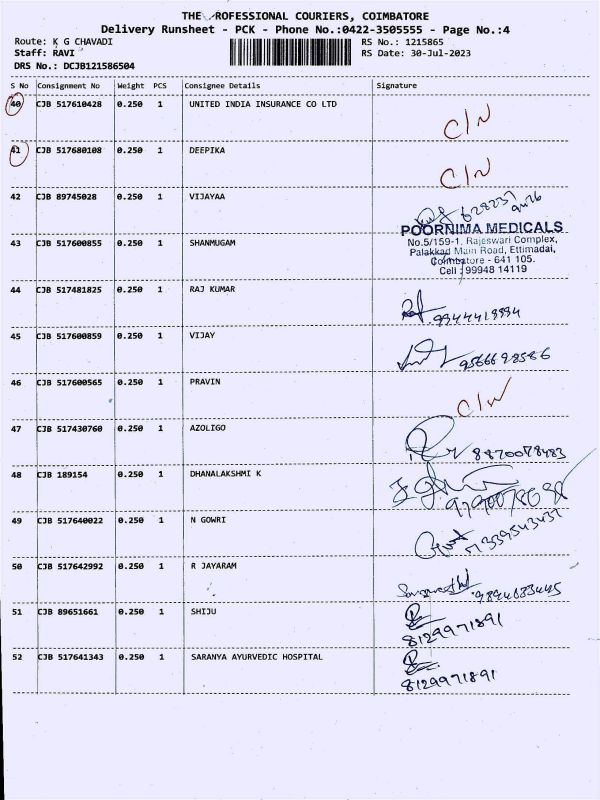 THE PROFESSIONAL COURIERS, COIMBATORE
Delivery Runsheet - PCK - Phone No.:0422-3505555 - Page No.:4
Route: K G CHAVADI RS No.: 1215865
Staff: RAVI RS Date: 30-Jul-2023
DRS No.: DCJB121586504
S No Consignment No Weight PCS Consignee Details Signature
40 CJB 517610428 0.250 1 UNITED INDIA INSURANCE CO LTD C/N
41 CJB 517680108 0.250 1 DEEPIKA C/N
42 CJB 89745028 0.250 1 VIJAYAA
43 CJB 517600855 0.250 1 SHANMUGAM
POORNIMA MEDICALS
No.5/159-1, Rajeswari Complex,
Palakkad Main Road, Ettimadai,
Coimbatore - 641 105.
Cell : 99948 14119
44 CJB 517481825 0.250 1 RAJ KUMAR
45 CJB 517600859 0.250 1 VIJAY 9566698586
46 CJB 517600565 0.250 1 PRAVIN C/N
47 CJB 517430760 0.250 1 AZOLIGO 8870078483
48 CJB 189154 0.250 1 DHANALAKSHMI K
49 CJB 517640022 0.250 1 N GOWRI
50 CJB 517642992 0.250 1 R JAYARAM 9894633445
51 CJB 89651661 0.250 1 SHIJU 8129971891
52 CJB 517641343 0.250 1 SARANYA AYURVEDIC HOSPITAL 8129971891